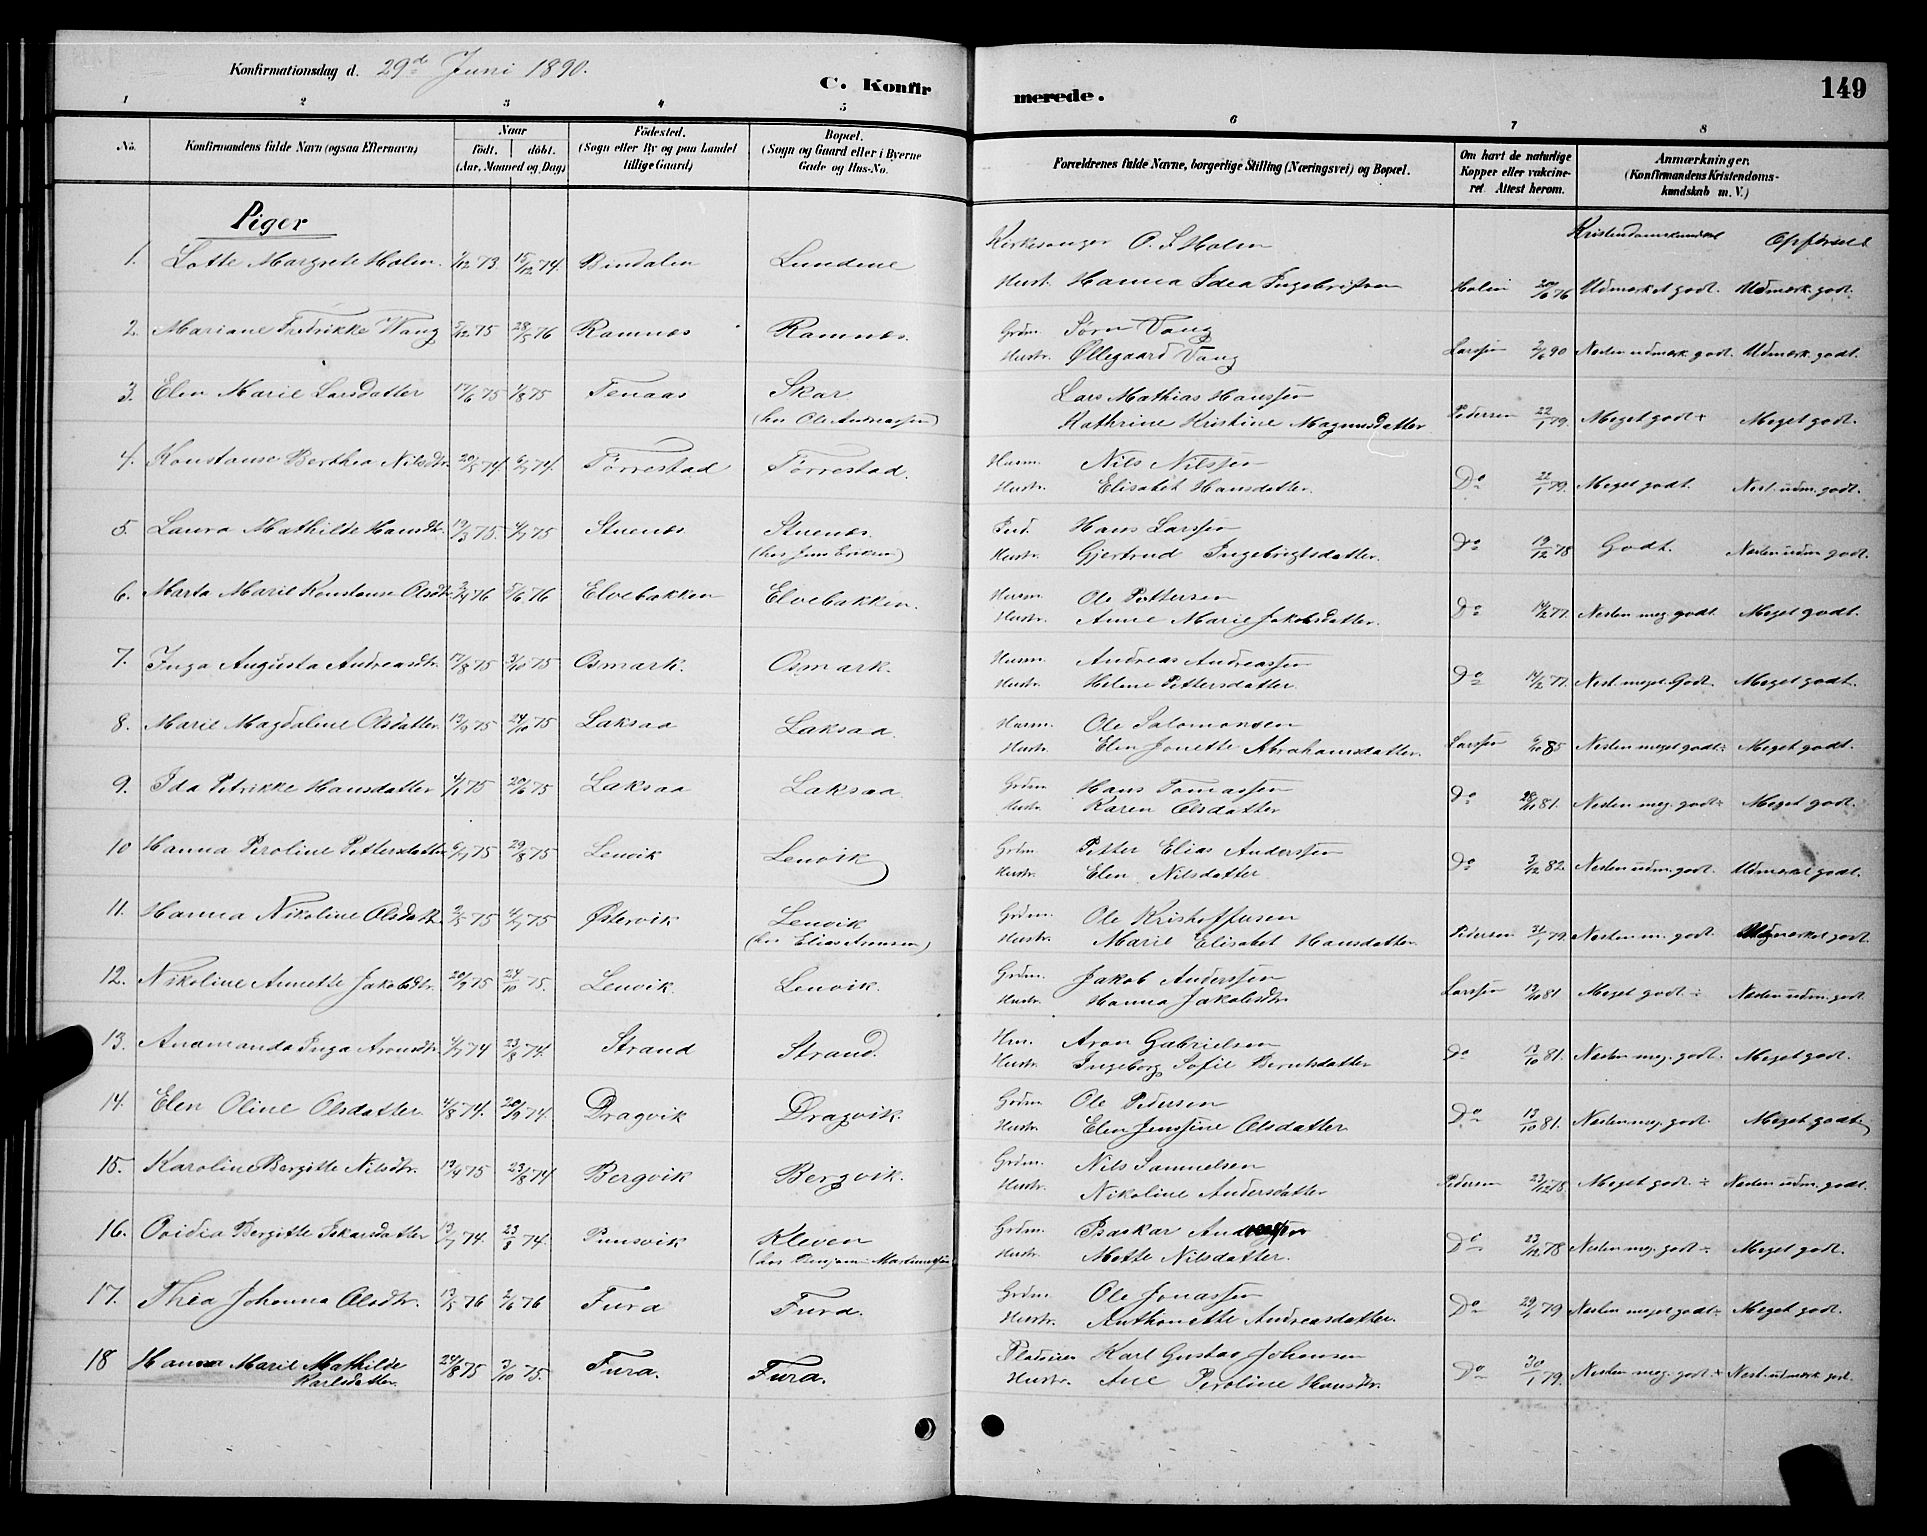 Konfirmationsdag d. 29de Juni 1890.
C. Konfirmerede.
149
1 2 3 4 5 6 7 8
No.
Konfirmandens fulde Navn (ogsaa Efternavn)
Naar
født. døbt.
(Aar, Maaned og Dag)
Fødested.
(Sogn eller By og paa Landet
tillige Gaard)
Bopæl.
(Sogn og Gaard eller i Byerne
Gade og Hus-No.
Forældrenes fulde Navne, borgerlige Stilling (Næringsvei) og Bopæl.
Om havt de naturlige
Kopper eller vakcine-
ret. Attest herom.
Anmærkninger.
(Konfirmandens Kristendoms-
kundskab m. V.)
Piger
Kristendomskundsk. Opførsel
1. Lotte Margrete Holm. 1/12 73. 15/12 74. Bindalen Lundene Kirkesanger O. S. Holm
Hust. Hanna Idea Ingebrigtsen Holm 20/6 76 Udmærket godt. Udmærk. godt.
2. Mariane Fredrikke Wang 5/12 75 28/5 76 Ramnæs Ramnæs. Grdm. Sørn Vang
Hustr. Øllegaard Vang Larssen 2/6 90 Nesten udmærk. godt. Udmærk. godt.
3. Elen Marie Larsdatter 17/6 75 1/8 75 Tenaas Skar Lars Mathias Hanssen
(hos Ole Andreassen) Kathrine Kristine Magnusdatter Pedersen 22/1 79. Meget godt ÷ Meget godt.
4. Konstanse Berthea Nilsdtr. 20/5 74. 6/7 74. Tørrestad Tørrestad. Husm. Nils Nilssen
Hustr. Elisabet Hansdatter. Do 22/1 79. Meget godt. Nest. udm. godt.
5. Laura Mathilde Hansdtr. 19/3 75. 4/7 75 Stuenæs Stuenæs. Ind. Hans Larssen
Hustr. Gjertrud Ingebrigtsdatter. Do 19/12 78 Godt. Nesten udm. godt.
6. Marta Marie Konstanse Olsdtr. 3/4 76 5/6 76 Elvebakken Elvebakken. Husm. Ole Pettersen
Hustr. Anne Marie Jakobsdatter. Do 14/2 77. Nesten meg. godt. Meget godt.
7. Inga Augusta Andreasdtr. 17/8 75 3/10 75 Osmark. Osmark. Husm. Andreas Andreassen
Hustr. Helene Pettersdatter. Do 14/2 77. Nest. meget Godt. Meget godt.
8. Marie Magdalene Olsdatter. 19/9 75 24/10 75 Laksaa Laksaa. Husm. Ole Salomonsen
Hustr. Elen Jonette Abrahamsdatter. Larssen 6/10 85 Nesten meget godt ÷ Meget godt.
9. Ida Petrikke Hansdatter 4/1 75 20/6 75 Laksaa Laksaa. Grdm. Hans Tomassen
Hustr. Karen Olsdatter Do 28/10 81. Nesten meg. godt ÷ Meget godt.
10 Hanna Peroline Pettersdatter 6/7 75 29/8 75 Lenvik Lenvik Grdm. Petter Elias Anderssen
Hustr. Elen Nilsdatter. Do 3/12 82. Nesten udm. godt. Udmærket godt.
11. Hanna Nikoline Olsdtr. 2/5 75 4/7 75 Østervik Lenvik Grdm. Ole Kristoffersen
(hos Elias Aronsen) Hustr. Marie Elisabet Hansdatter. Pedersen 31/1 79. Nesten m. godt. Udmærket godt.
12. Nikoline Annette Jakobsdtr. 20/9 75 24/10 75. Lenvik. Lenvik. Grdm. Jakob Anderssen
Hustr. Hanna Jakobsdtr. Larssen 13/10 81 Meget godt ÷ Nesten udm. godt.
13. Anamanda Inga Aronsdtr. 4/7 74 23/8 74. Strand Strand. Hm. Aron Gabrielsen
Hustr. Ingeborg Sofie Berntsdatter Do 13/10 81. Nesten meg. godt. Meget godt.
14. Elen Oline Olsdatter. 4/8 74. 20/9 74. Dragvik Dragvik. Grdm. Ole Pedersen
Hustr. Elen Jenssine Olsdatter Do 13/10 81. Nesten meg. godt. Meget godt
15. Karoline Bergitte Nilsdtr. 19/4 75 23/8 74 Bergvik Bergvik. Grdm. Nils Samuelsen
Hustr. Nikoline Andersdatter Pedersen 23/12 78. Meget godt. ÷ Nesten udm. godt.
16. Ovidia Bergitte Iskarsdatter 13/7 74. 23/8 74. Punsvik Kleven Grdm. Isaskar Andreassen
(hos Benjam. Martinussen Hustr. Mette Nilsdatter. Do 23/12 78 Nesten meg. godt ÷ Meget godt.
17. Thea Johanna Olsdtr. 13/5 76 2/6 76 Fura Fura. Grdm. Ole Jonassen
Hustr. Anthonette Andreasdatter. Do 29/1 79 Nesten meget godt ÷ Meget godt.
18 Hanna Marie Mathilde 24/8 75 3/10 75. Fura. Fura. Karl Gustav Johansen
Karlsdatter. Hustr. Ane Peroline Hansdtr. Do 30/1 79. Nesten meg. godt. ÷ Nest. udmærk. godt.